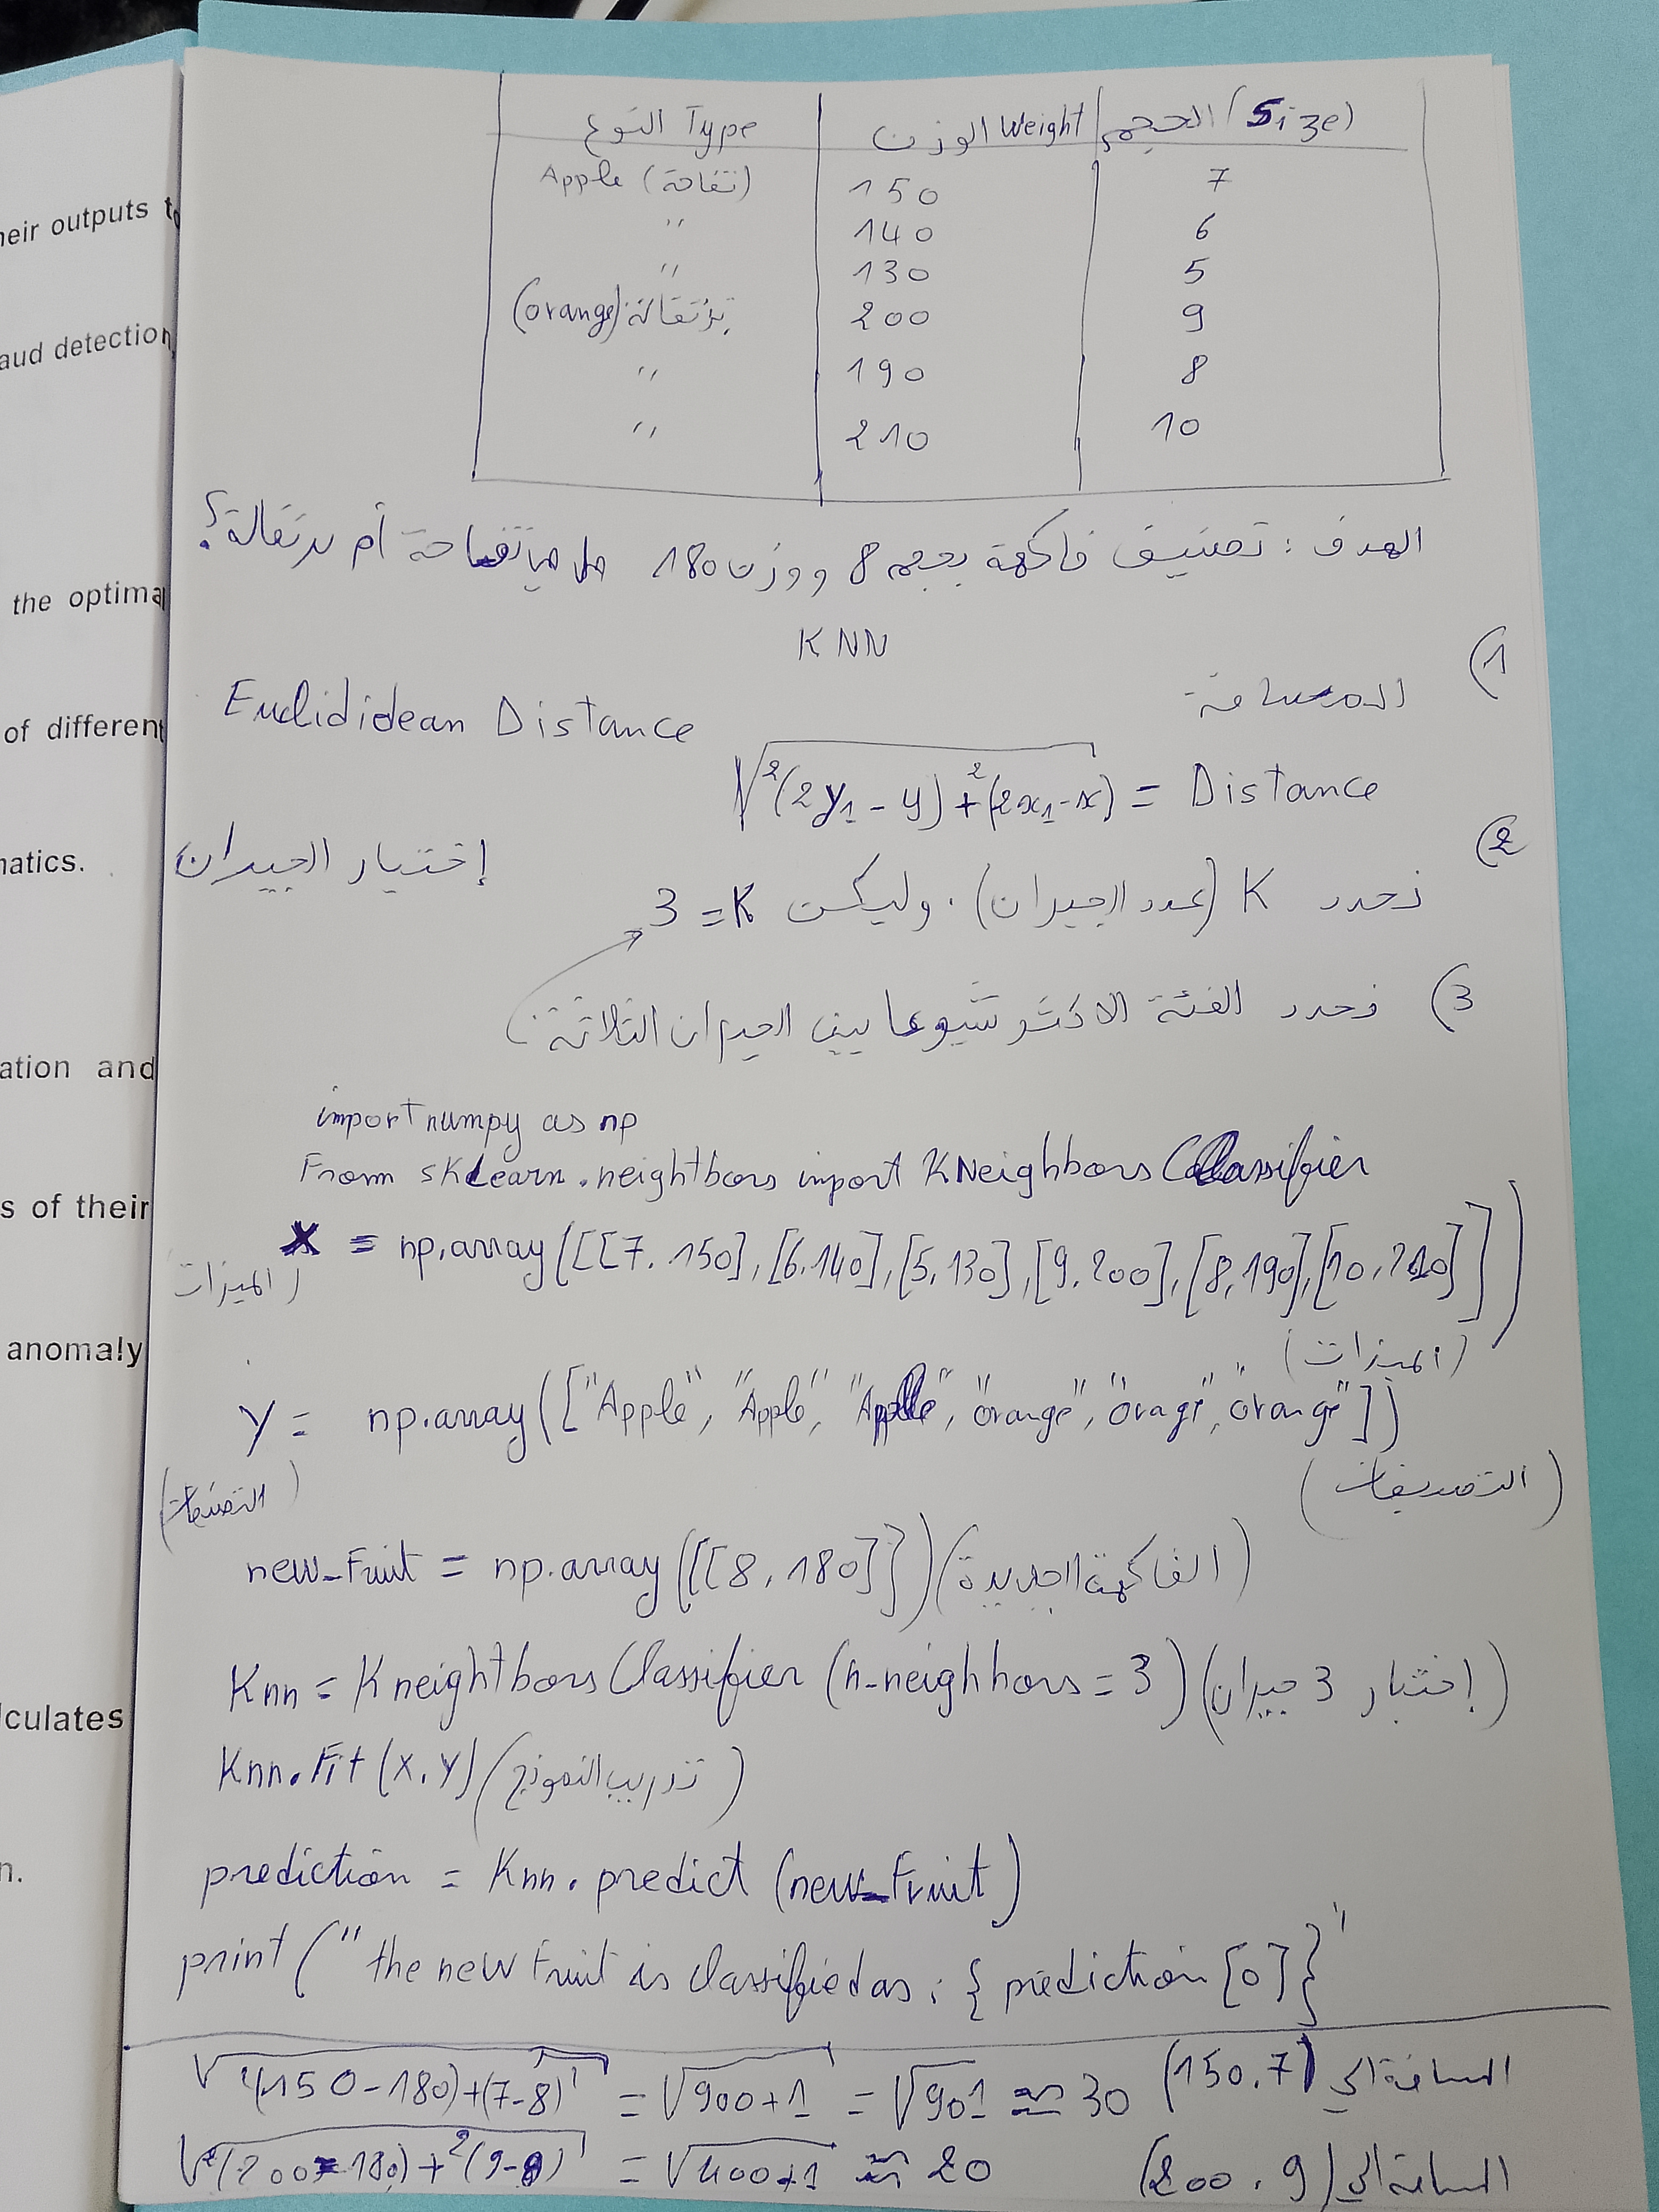 heir outputs to
aud detection,
the optima
of different
matics.
ation and
s of their
anomaly
lculates
n.
النوع Type | الوزن Weight | الحجم (Size)
Apple (تفاحة) | 150 | 7
" | 140 | 6
" | 130 | 5
(orange) برتقالة | 200 | 9
" | 190 | 8
" | 210 | 10
الهدف : تصنيف فاكهة بحجم 8 ووزن 180 هل هي تفاحة أم برتقالة؟
KNN
(1 المسافة
Euclididean Distance
√²(2y1 - y) + ²(2x1 - x) = Distance
(2 إختيار الجيران
نحدد K (عدد الجيران). وليكن K = 3
(3 نحدد الفئة الاكثر شيوعا بين الجيران الثلاثة
import numpy as np
From sklearn.neightbors import KNeighbors Classifier
X = np.array([[7. 150], [6.140], [5.130], [9.200], [8,190], [10,210]])
(الميزات (الميزات)
Y = np.array(["Apple", "Apple", "Apple", "orange", "oragr", "orange"])
(التصنيفات) (التصنيفات)
new_Fruit = np.array([[8,180]]) (الفاكهة الجديدة)
Knn = Kneightbors Classifier (n-neighhors = 3) (إختيار 3 جيران)
Knn.Fit (X.Y) (تدريب النموذج)
prediction = Knn.predict (new_Fruit)
print ("the new Fruit is classified as : {prediction [0]}"
√(150-180)+(7-8) = √900+1 = √901 ≈ 30 المسافة إلى (150.7)
√²(200-180)+²(9-8) = √400+1 ≈ 20 المسافة إلى (200.9)